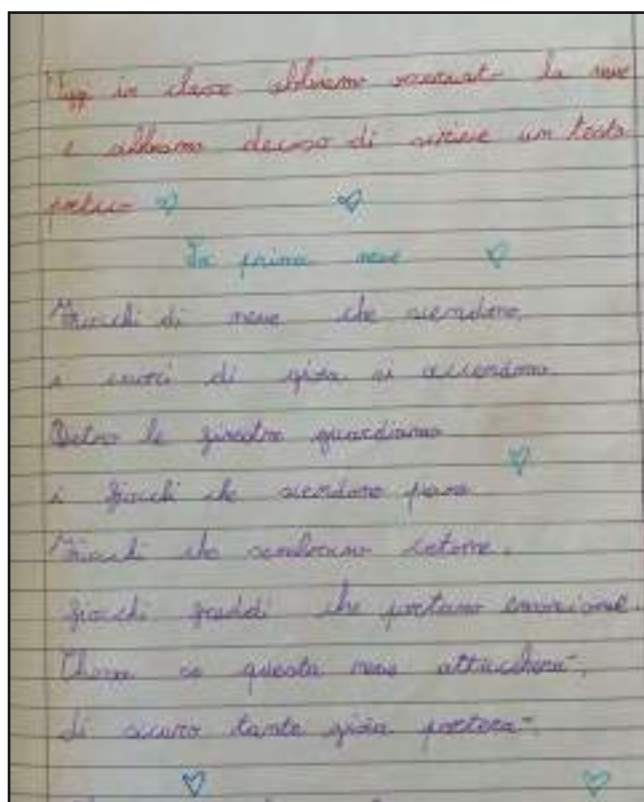 Oggi in classe abbiamo osservato la neve
e abbiamo deciso di scrivere un testo
poetico
La prima neve
Fiocchi di neve che scendono,
i cuori di gioia si accendono.
Dietro le finestre guardiamo
i fiocchi che scendono piano.
Fiocchi che sembrano cotone,
fiocchi freddi che portano emozione
Chissà se questa neve attaccherà,
di sicuro tanta gioia porterà.